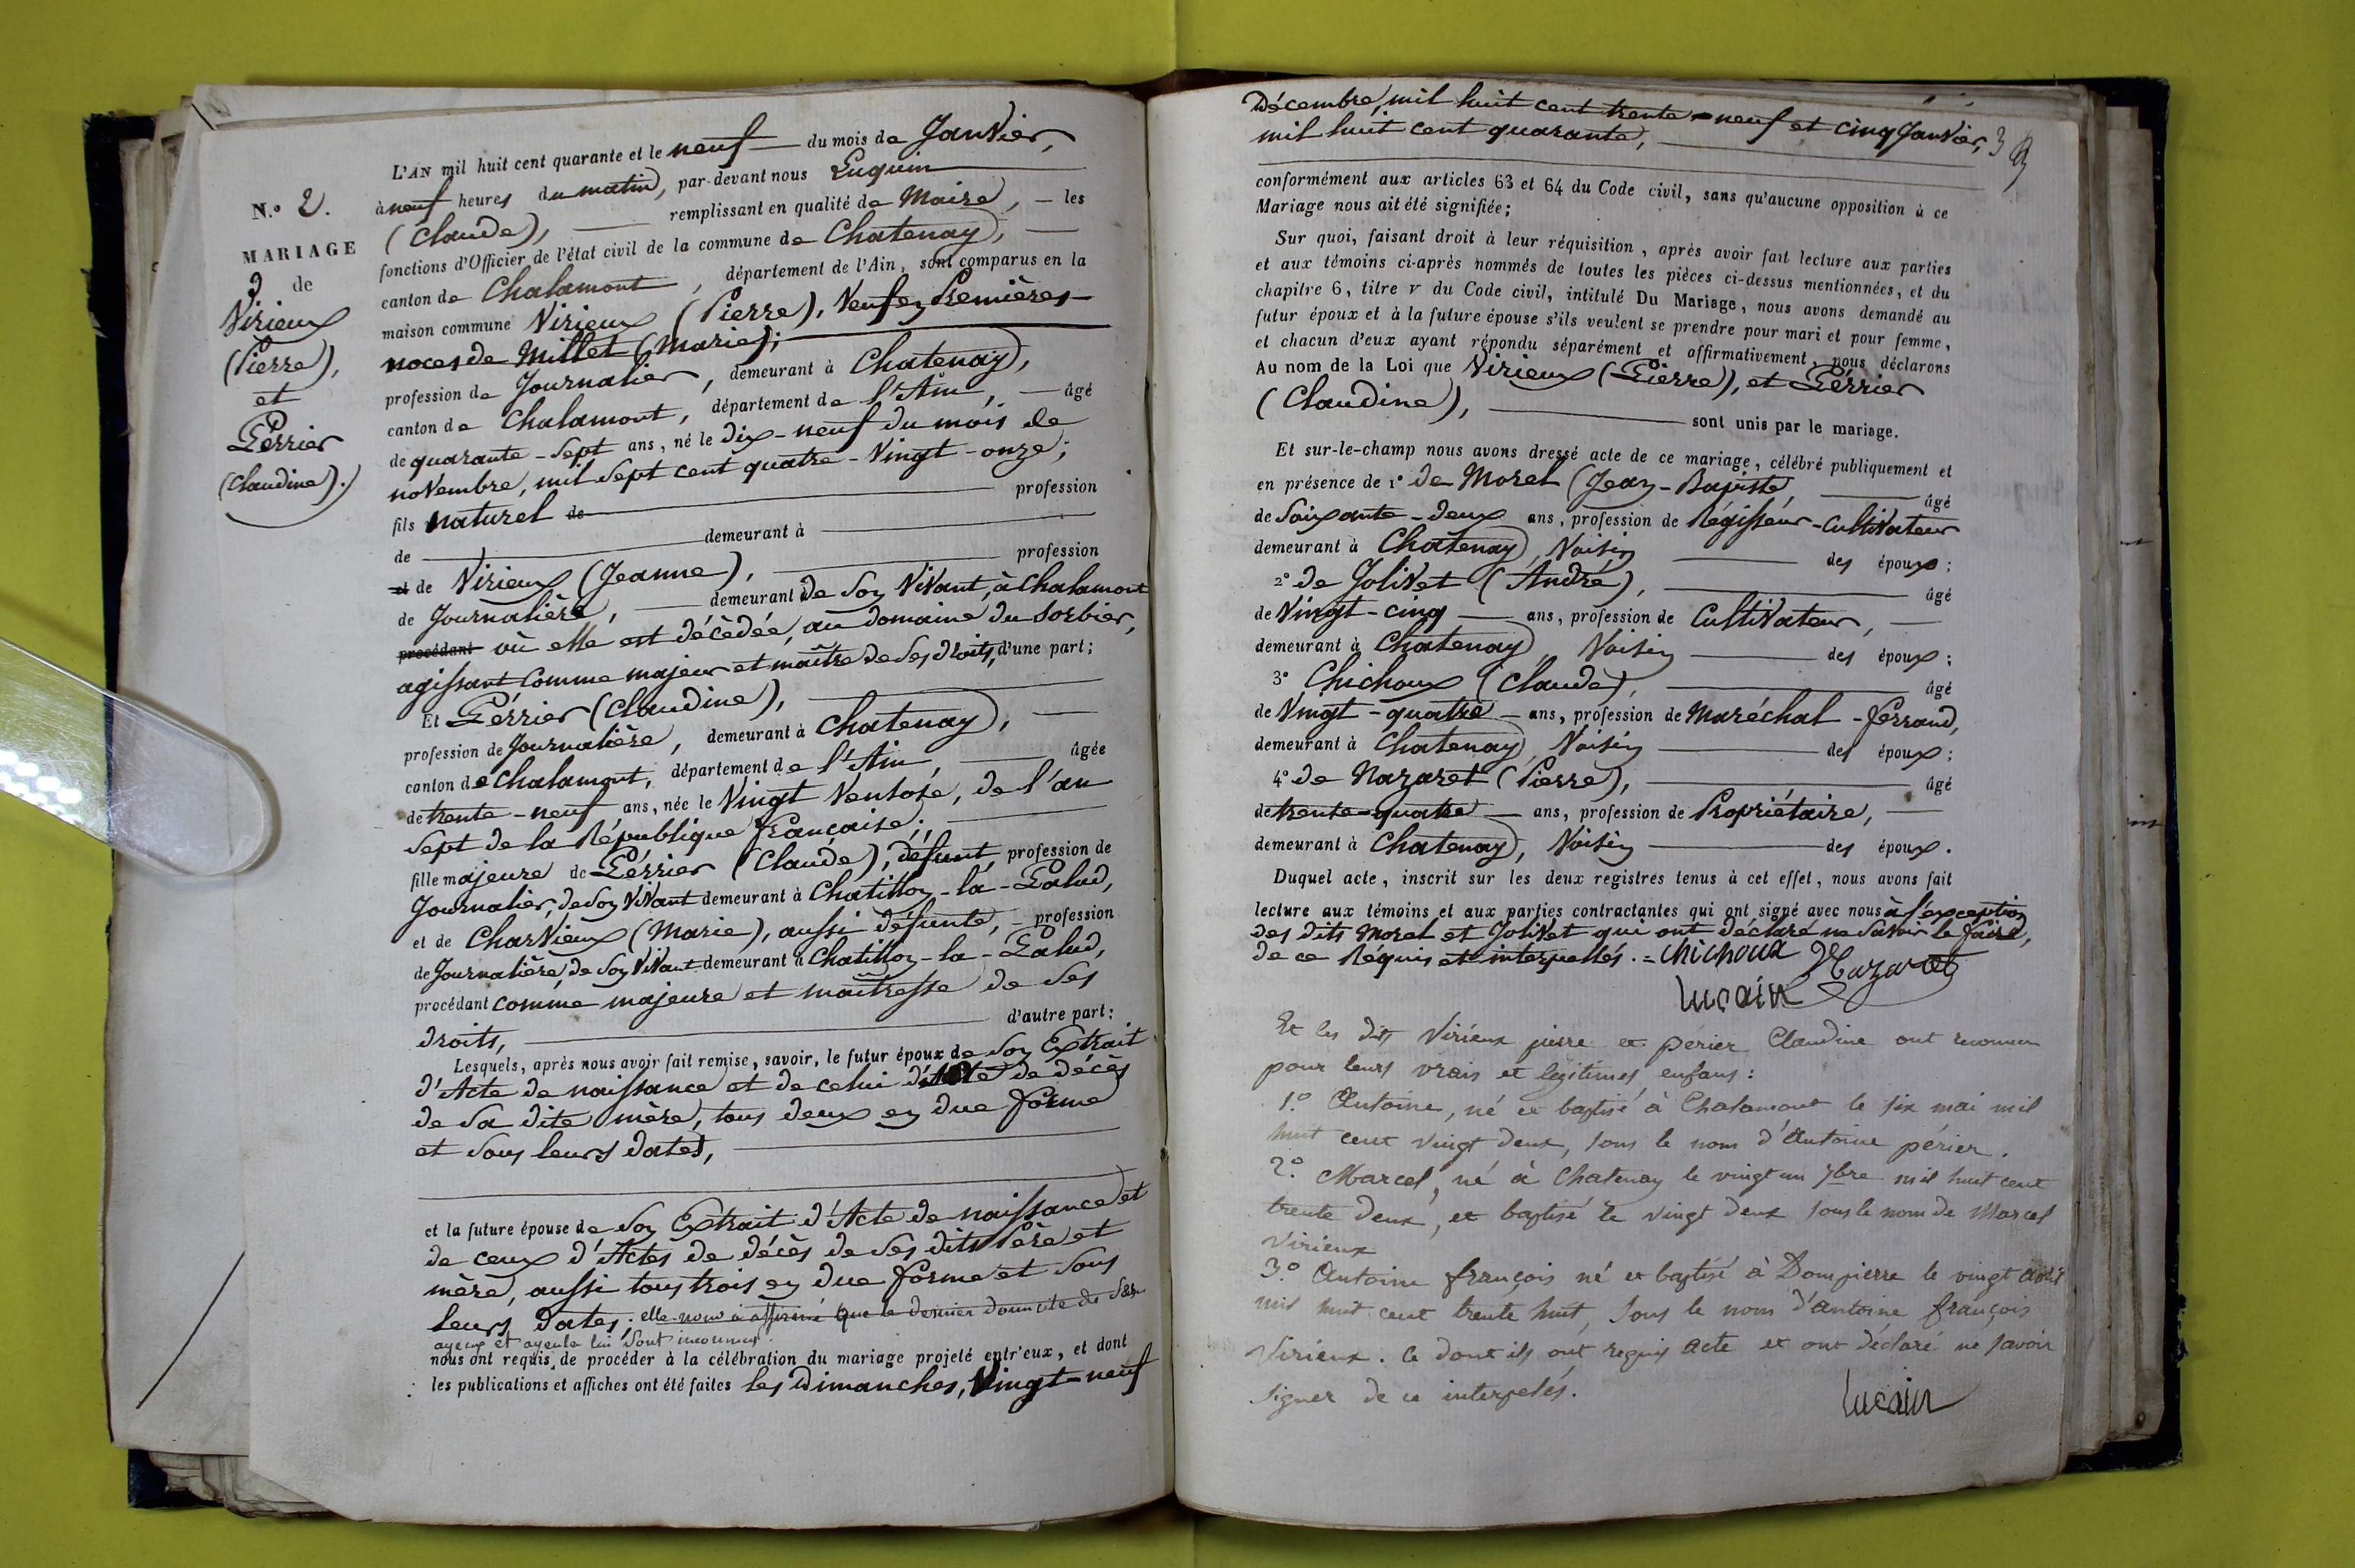 N.º 2.
MARIAGE
de
Virieux
(Pierre),
et
Pérrier
(Claudine).
L'AN mil huit cent quarante et le neuf du mois de Janvier,
à neuf heures du matin, par-devant nous Luquin
(Claude), remplissant en qualité de Maire, les
fonctions d'Officier de l'état civil de la commune de Chatenay,
canton de Chalamont, département de l'Ain, sont comparus en la
maison commune Virieux (Pierre), Veuf en Premières
noces de Millet (Marie);
profession de Journalier, demeurant à Chatenay,
canton de Chalamont, département de l'Ain, âgé
de quarante-sept ans, né le dix-neuf du mois de
novembre, mil sept cent quatre-Vingt-onze;
fils naturel de profession
de demeurant à
et de Virieux (Jeanne), profession
de Journalière, demeurant de son Vivant, à Chalamont
procédant où elle est décédée, au domaine du Sorbier,
agissant comme majeur et maître de ses droits, d'une part;
Et Pérrier (Claudine),
profession de Journalière, demeurant à Chatenay,
canton de Chalamont, département de l'Ain, âgée
de trente-neuf ans, née le Vingt Ventose, de l'an
sept de la République française;
fille majeure de Pérrier (Claude), défunt, profession de
Journalier, de son Vivant demeurant à Chatillon-la-Palud,
et de Charvieux (Marie), aussi défunte, profession
de Journalière, de son Vivant demeurant à Chatillon-la-Palud,
procédant comme majeure et maîtresse de ses
droits, d'autre part:
Lesquels, après nous avoir fait remise, savoir, le futur époux de son Extrait
d'Acte de naissance et de celui d'Acte de décès
de sa dite mère, tous deux en due forme
et sous leurs dates,
et la future épouse de son Extrait d'Acte de naissance et
de ceux d'Actes de décès de ses dits Père et
mère, aussi tous trois en due forme et sous
leurs dates; elle nous a affirmé que le dernier domicile de ses
ayeux et ayeule lui sont inconnus.
nous ont requis de procéder à la célébration du mariage projeté entr'eux, et dont
les publications et affiches ont été faites les Dimanches, Vingt-neuf
Décembre, mil huit cent trente-neuf et cinq Janvier, 3
mil huit cent quarante,
conformément aux articles 63 et 64 du Code civil, sans qu'aucune opposition à ce
Mariage nous ait été signifiée;
Sur quoi, faisant droit à leur réquisition, après avoir fait lecture aux parties
et aux témoins ci-après nommés de toutes les pièces ci-dessus mentionnées, et du
chapitre 6, titre v du Code civil, intitulé Du Mariage, nous avons demandé au
futur époux et à la future épouse s'ils veulent se prendre pour mari et pour femme,
et chacun d'eux ayant répondu séparément et affirmativement, nous déclarons
Au nom de la Loi que Virieux (Pierre), et Pérrier
(Claudine), sont unis par le mariage.
Et sur-le-champ nous avons dressé acte de ce mariage, célébré publiquement et
en présence de 1º de Morel (Jean-Bapiste, âgé
de soixante-deux ans, profession de Régisseur-Cultivateur
demeurant à Chatenay, Voisin des époux;
2º de Jolivet (André), âgé
de Vingt-cinq ans, profession de Cultivateur,
demeurant à Chatenay, Voisin des époux;
3º Chichoux (Claude), âgé
de Vingt-quatre ans, profession de Maréchal-ferrand,
demeurant à Chatenay, Voisin des époux;
4º de Nazaret (Pierre), âgé
de trente-quatre ans, profession de Propriétaire,
demeurant à Chatenay, Voisin des époux.
Duquel acte, inscrit sur les deux registres tenus à cet effet, nous avons fait
lecture aux témoins et aux parties contractantes qui ont signé avec nous à l'exception
des dits Morel et Jolivet qui ont déclaré ne savoir le faire,
de ce Réquis et interpellés. = Chichoux Nazaret
Luçain
Et les dits Virieux pierre et perier Claudine ont reconnu
pour leurs vrais et legitimes enfans:
1.º Antoine, né et baptisé à Chalamont le six mai mil
huit cent vingt deux, sous le nom d'Antoine périer.
2.º Marcel, né à Chatenay le vingt un 7bre mil huit cent
trente deux, et baptisé le vingt deux sous le nom de Marcel
Virieux
3.º Antoine françois né et baptisé à Dompierre le vingt avril
mil huit cent trente huit, sous le nom d'antoine françois
Virieux. Ce dont ils ont requis acte et ont déclaré ne savoir
signer de ce interpelés.
Luçain